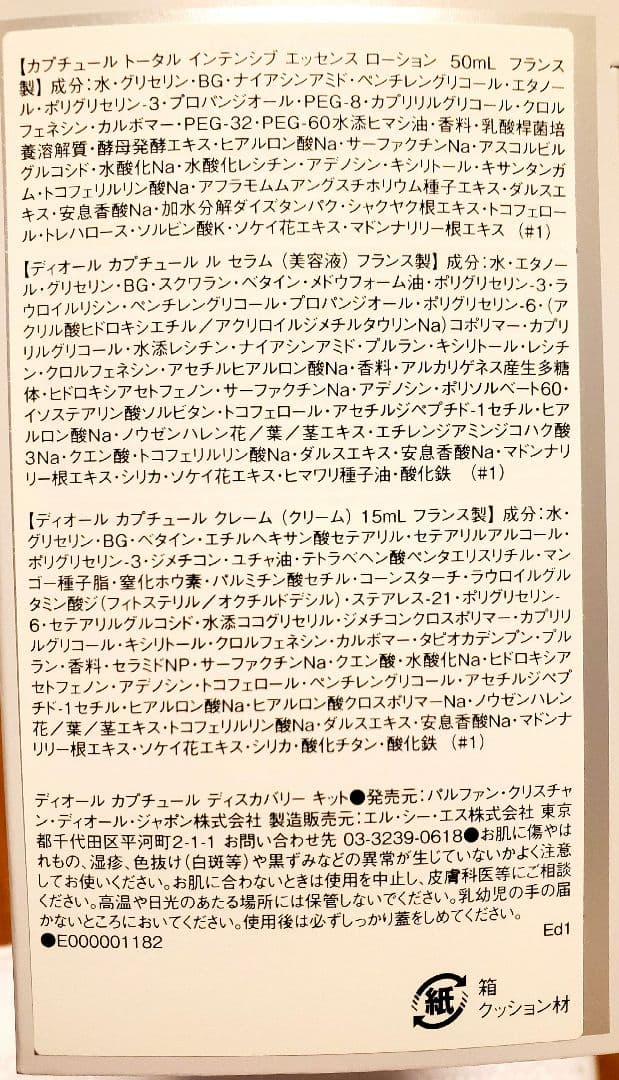 【カプチュール トータル インテンシブ エッセンス ローション 50mL フランス
製】成分:水・グリセリン・BG・ナイアシンアミド・ペンチレングリコール・エタノ
ール・ポリグリセリン-3・プロパンジオール・PEG-8・カプリリルグリコール・クロル
フェネシン・カルボマー・PEG-32・PEG-60水添ヒマシ油・香料・乳酸桿菌培
養溶解質・酵母発酵エキス・ヒアルロン酸Na・サーファクチンNa・アスコルビル
グルコシド・水酸化Na・水酸化レシチン・アデノシン・キシリトール・キサンタンガ
ム・トコフェリルリン酸Na・アフラモムムアングスチホリウム種子エキス・ダルスエ
キス・安息香酸Na・加水分解ダイズタンパク・シャクヤク根エキス・トコフェロー
ル・トレハロース・ソルビン酸K・ソケイ花エキス・マドンナリリー根エキス (#1)
【ディオール カプチュール ル セラム (美容液) フランス製】成分:水・エタノー
ル・グリセリン・BG・スクワラン・ベタイン・メドウフォーム油・ポリグリセリン-3・ラ
ウロイルリシン・ペンチレングリコール・プロパンジオール・ポリグリセリン-6・(ア
クリル酸ヒドロキシエチル/アクリロイルジメチルタウリンNa)コポリマー・カプリ
リルグリコール・水添レシチン・ナイアシンアミド・プルラン・キシリトール・レシチ
ン・クロルフェネシン・アセチルヒアルロン酸Na・香料・アルカリゲネス産生多糖
体・ヒドロキシアセトフェノン・サーファクチンNa・アデノシン・ポリソルベート60・
イソステアリン酸ソルビタン・トコフェロール・アセチルジペプチド-1セチル・ヒア
ルロン酸Na・ノウゼンハレン花/葉/茎エキス・エチレンジアミンジコハク酸
3Na・クエン酸・トコフェリルリン酸Na・ダルスエキス・安息香酸Na・マドンナリ
リー根エキス・シリカ・ソケイ花エキス・ヒマワリ種子油・酸化鉄 (#1)
【ディオール カプチュール クレーム (クリーム) 15mL フランス製】成分:水・
グリセリン・BG・ベタイン・エチルヘキサン酸セテアリル・セテアリルアルコール・
ポリグリセリン-3・ジメチコン・ユチャ油・テトラベヘン酸ペンタエリスリチル・マン
ゴー種子脂・窒化ホウ素・パルミチン酸セチル・コーンスターチ・ラウロイルグル
タミン酸ジ(フィトステリル/オクチルドデシル)・ステアレス-21・ポリグリセリン-
6・セテアリルグルコシド・水添ココグリセリル・ジメチコンクロスポリマー・カプリリ
ルグリコール・キシリトール・クロルフェネシン・カルボマー・タピオカデンプン・プル
ラン・香料・セラミドNP・サーファクチンNa・クエン酸・水酸化Na・ヒドロキシア
セトフェノン・アデノシン・トコフェロール・ペンチレングリコール・アセチルジペプ
チド-1セチル・ヒアルロン酸Na・ヒアルロン酸クロスポリマーNa・ノウゼンハレン
花/葉/茎エキス・トコフェリルリン酸Na・ダルスエキス・安息香酸Na・マドンナ
リリー根エキス・ソケイ花エキス・シリカ・酸化チタン・酸化鉄 (#1)
ディオール カプチュール ディスカバリー キット●発売元:パルファン・クリスチャ
ン・ディオール・ジャポン株式会社 製造販売元:エル・シー・エス株式会社 東京
都千代田区平河町2-1-1 お問い合わせ先 03-3239-0618●お肌に傷やは
れもの、湿疹、色抜け(白斑等)や黒ずみなどの異常が生じていないかよく注意
してお使いください。お肌に合わないときは使用を中止し、皮膚科医等にご相談
ください。高温や日光のあたる場所には保管しないでください。乳幼児の手の届
かないところにおいてください。使用後は必ずしっかり蓋をしめてください。
●E000001182
Ed1
紙
箱
クッション材